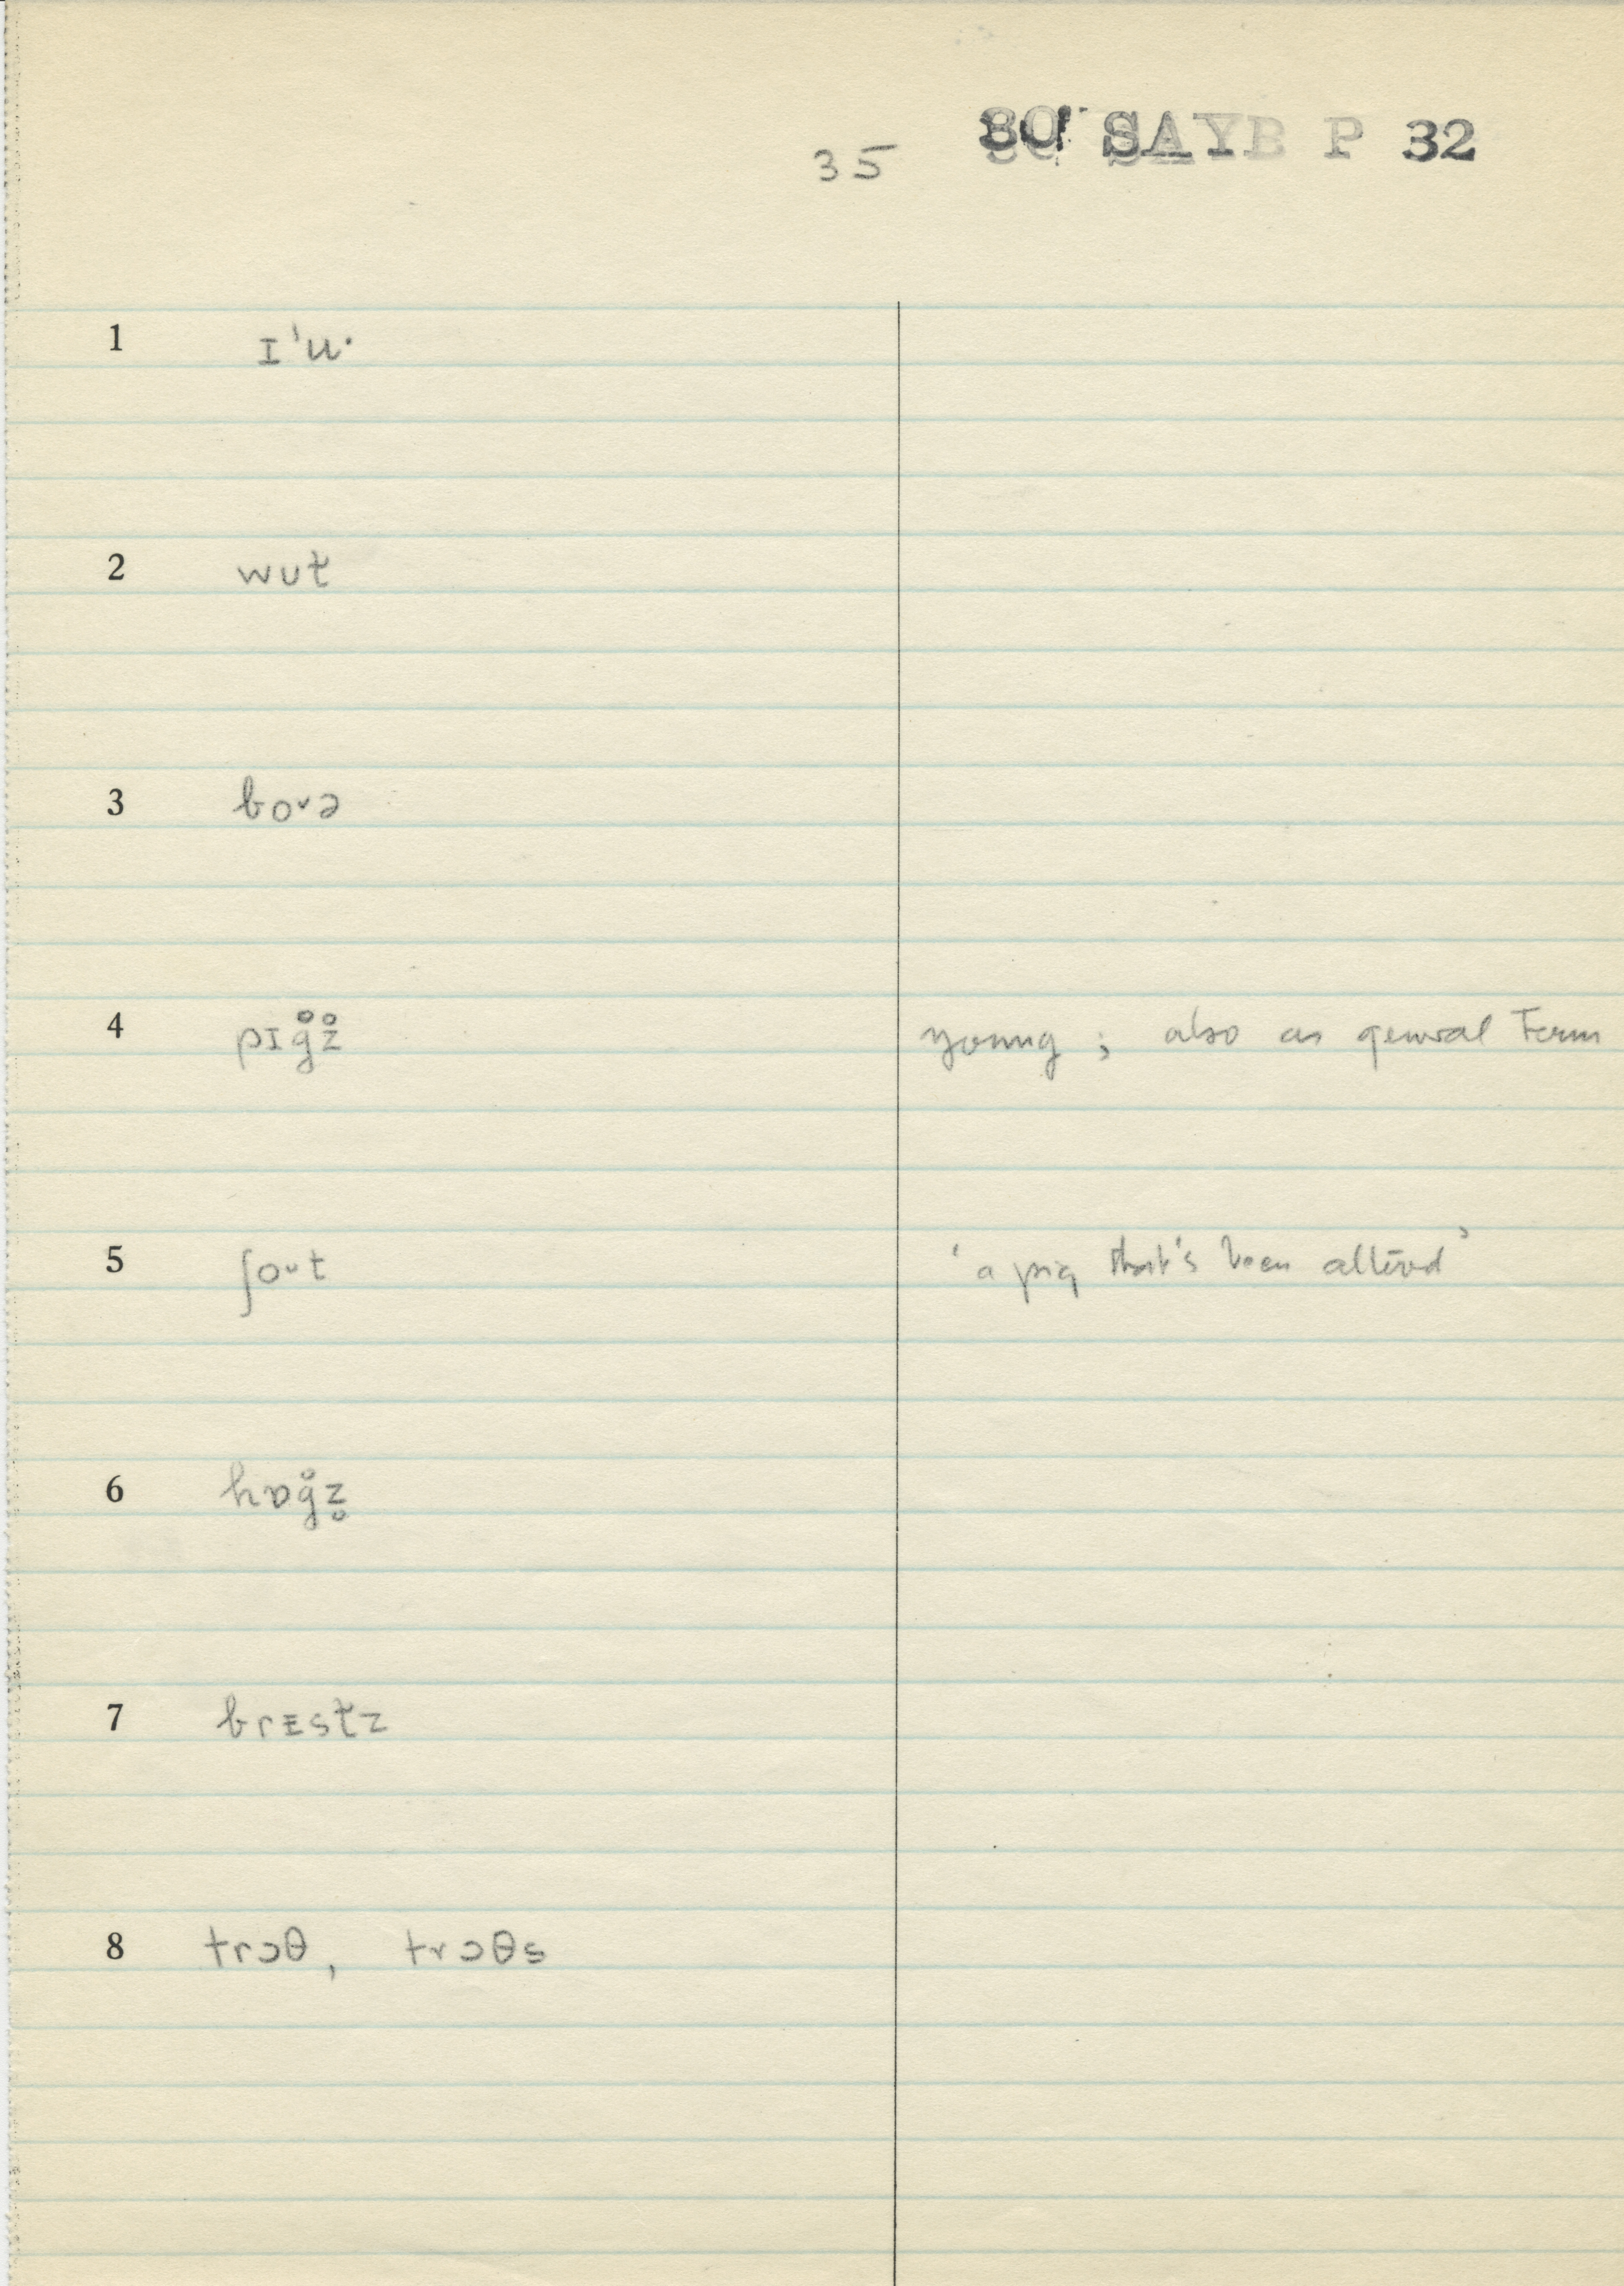 35 80 SAYB P 32
1 ɪ'u·
2 wut̬
3 boᵛə
4 pɪg̊z̊ young ; also as general Term
5 ʃoᵘt 'a pig that's been altered'
6 hɒg̊z̥
7 brɛst̬z
8 trɔθ, trɔθs